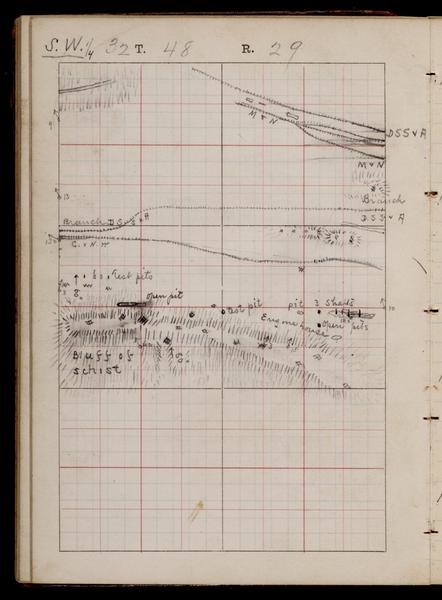 S. W. 1/4 32 T. 48 R. 29
M & N
D S S & A
M & N
Branch
D S S & A
Branch D S S & A
C. & N. W
Test pits
open pit
Test pit
pit 3 Shafts
Engine house
open pits
Bluff of
schist